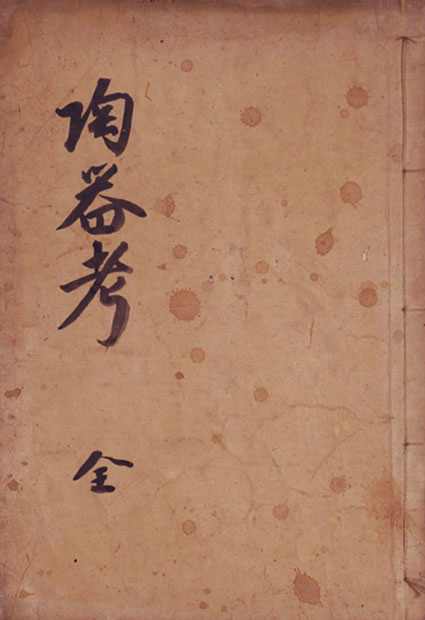 陶器考
全